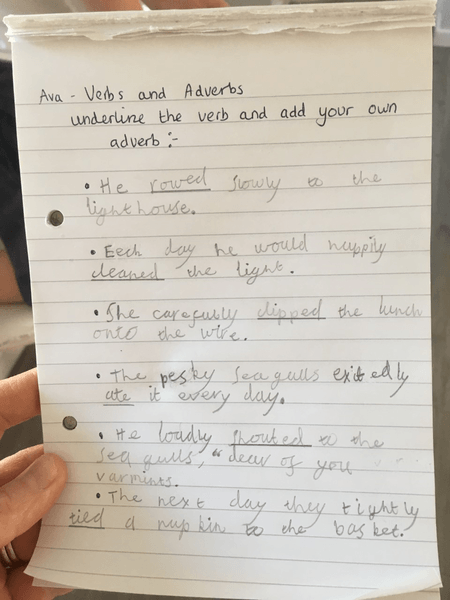 Ava - Verbs and Adverbs
underline the verb and add your own
adverb :-
• He rowed slowly to the
lighthouse.
• Eech day he would happily
cleaned the light.
• She carefully clipped the lunch
onto the wire.
• The pesky sea gulls exitedly
ate it every day.
• He loadly shouted to the
sea gulls, "clear of you
varmints.
• The next day they tightly
tied a napkin to the basket.